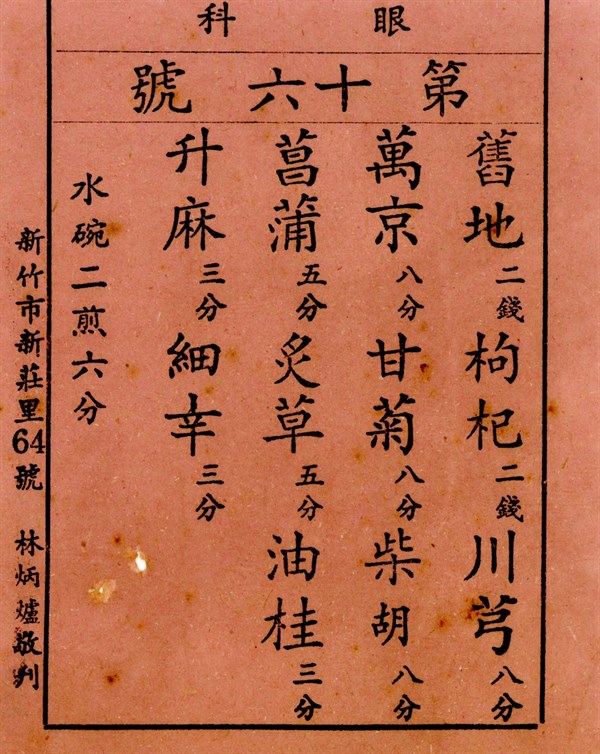 眼科
第十六號
舊地二錢 枸杞二錢 川芎八分
萬京八分 甘菊八分 柴胡八分
菖蒲五分 炙草五分 油桂三分
升麻三分 細辛三分
水碗二煎六分
新竹市新莊里64號 林炳爐敬刋